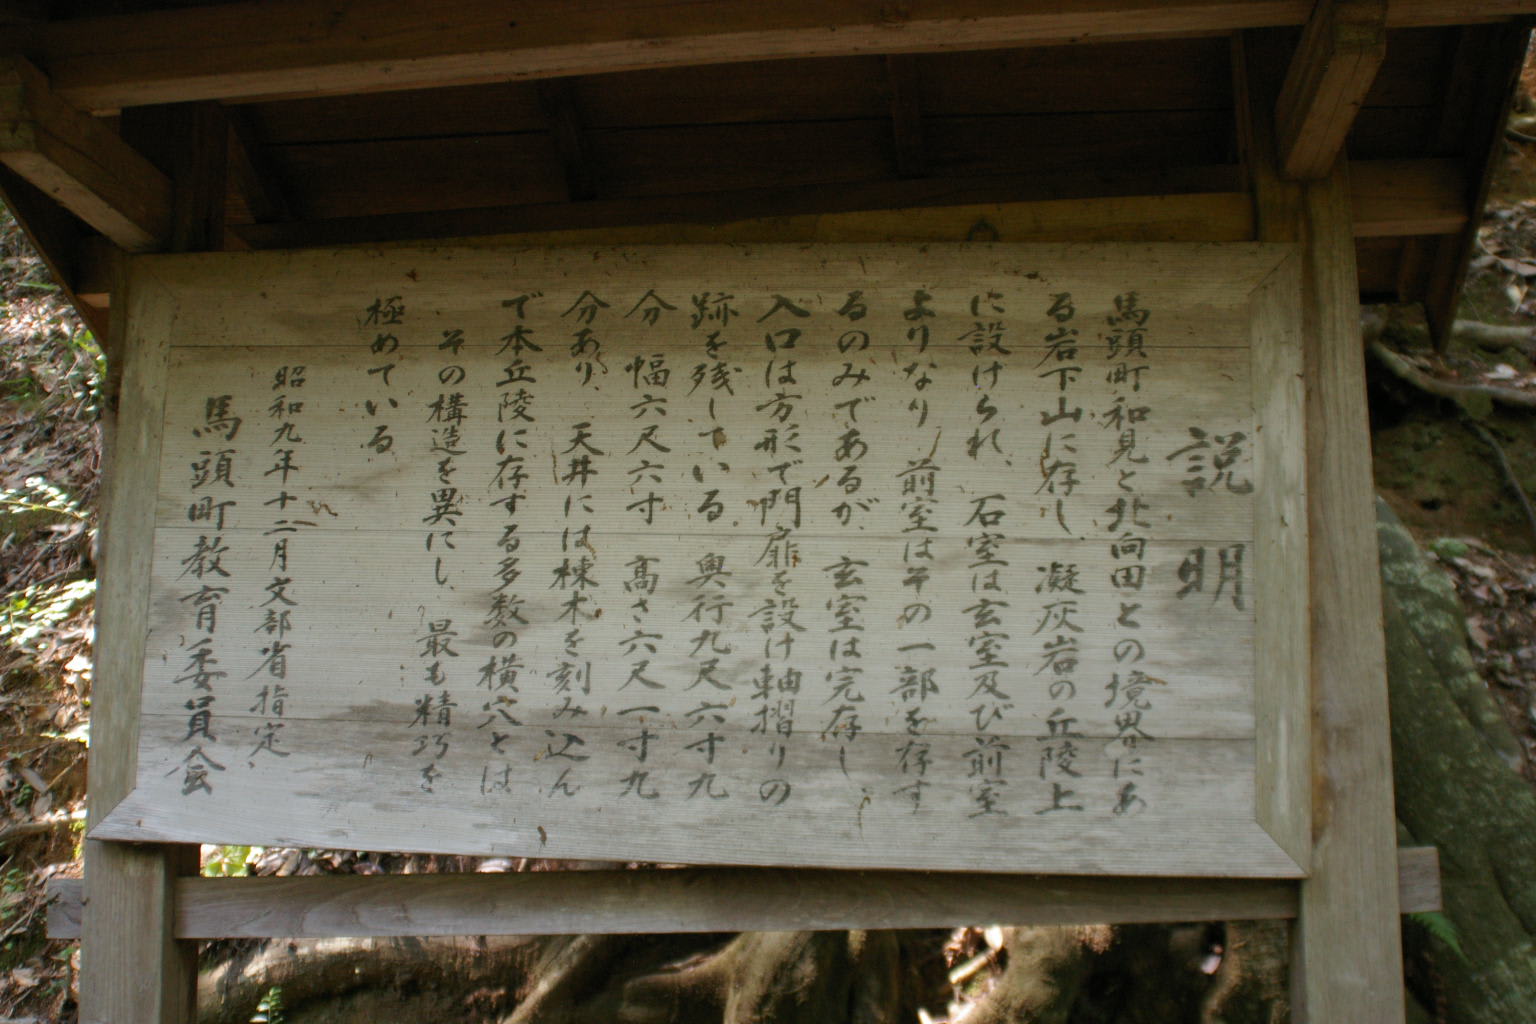 説明
馬頭町和見と北向田との境界にあ
る岩下山に存し、凝灰岩の丘陵上
に設けられ、石室は玄室及び前室
よりなり 前室はその一部を存す
るのみであるが、玄室は完存し
入口は方形で門扉を設け軸摺りの
跡を残している 奥行九尺六寸九
分 幅六尺六寸 高さ六尺一寸九
分あり、天井には棟木を刻み込ん
で本丘陵に存する多数の横穴とは
その構造を異にし、最も精巧を
極めている
昭和九年十二月文部省指定、
馬頭町教育委員会